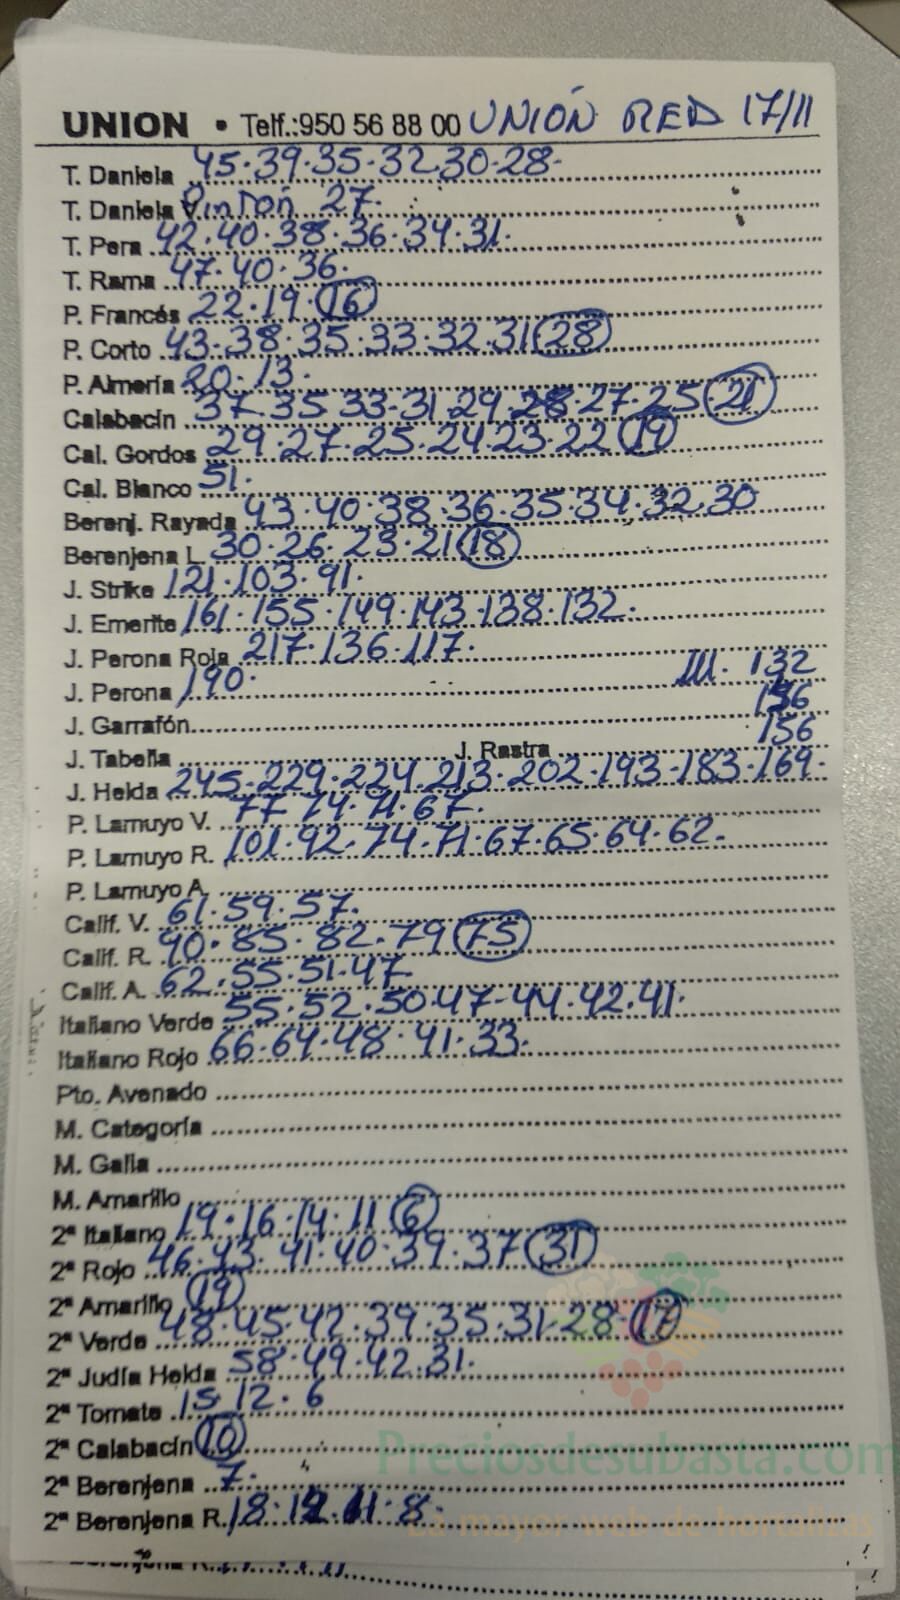 UNION • Telf.:950 56 88 00 UNIÓN RED 17/11
T. Daniela 45·39·35·32·30·28·
T. Daniela V. Pintón 27·
T. Pera 42·40·38·36·34·31·
T. Rama 47·40·36·
P. Francés 22·19·16
P. Corto 43·38·35·33·32·31 28
P. Almería 20·13·
Calabacín 37·35 33·31·29·28·27·25 21
Cal. Gordos 29·27·25·24·23·22 19
Cal. Blanco 51·
Berenj. Rayada 43·40·38·36·35·34·32·30
Berenjena L. 30·26·23·21 18
J. Strike 121·103·91·
J. Emerite 161·155·149·143·138·132·
J. Perona Roja 217·136·117·
J. Perona 190· 132
J. Garrafón 156
J. Tabella J. Rastra
J. Helda 245·229·224·213·202·193·183·169·
P. Lamuyo V. 77 74·71·67·
P. Lamuyo R. 101·92·74·71·67·65·64·62·
P. Lamuyo A.
Calif. V. 61·59·57·
Calif. R. 90·85·82·79 75
Calif. A. 62·55·51·47
Italiano Verde 55·52·50·47·44·42·41·
Italiano Rojo 66·64·48·41·33·
Pto. Avenado
M. Categoría
M. Galia
M. Amarillo
2ª Italiano 19·16·14·11 6
2ª Rojo 46·43·41·40·39·37 31
2ª Amarillo 19
2ª Verde 48·45·42·39·35·31·28·
2ª Judía Helda 58·49·42·31·
2ª Tomate 15·12·6
2ª Calabacín 10
2ª Berenjena 7·
2ª Berenjena R. 18· 11·8·
Preciosdesubasta.com
La mayor web de hortalizas